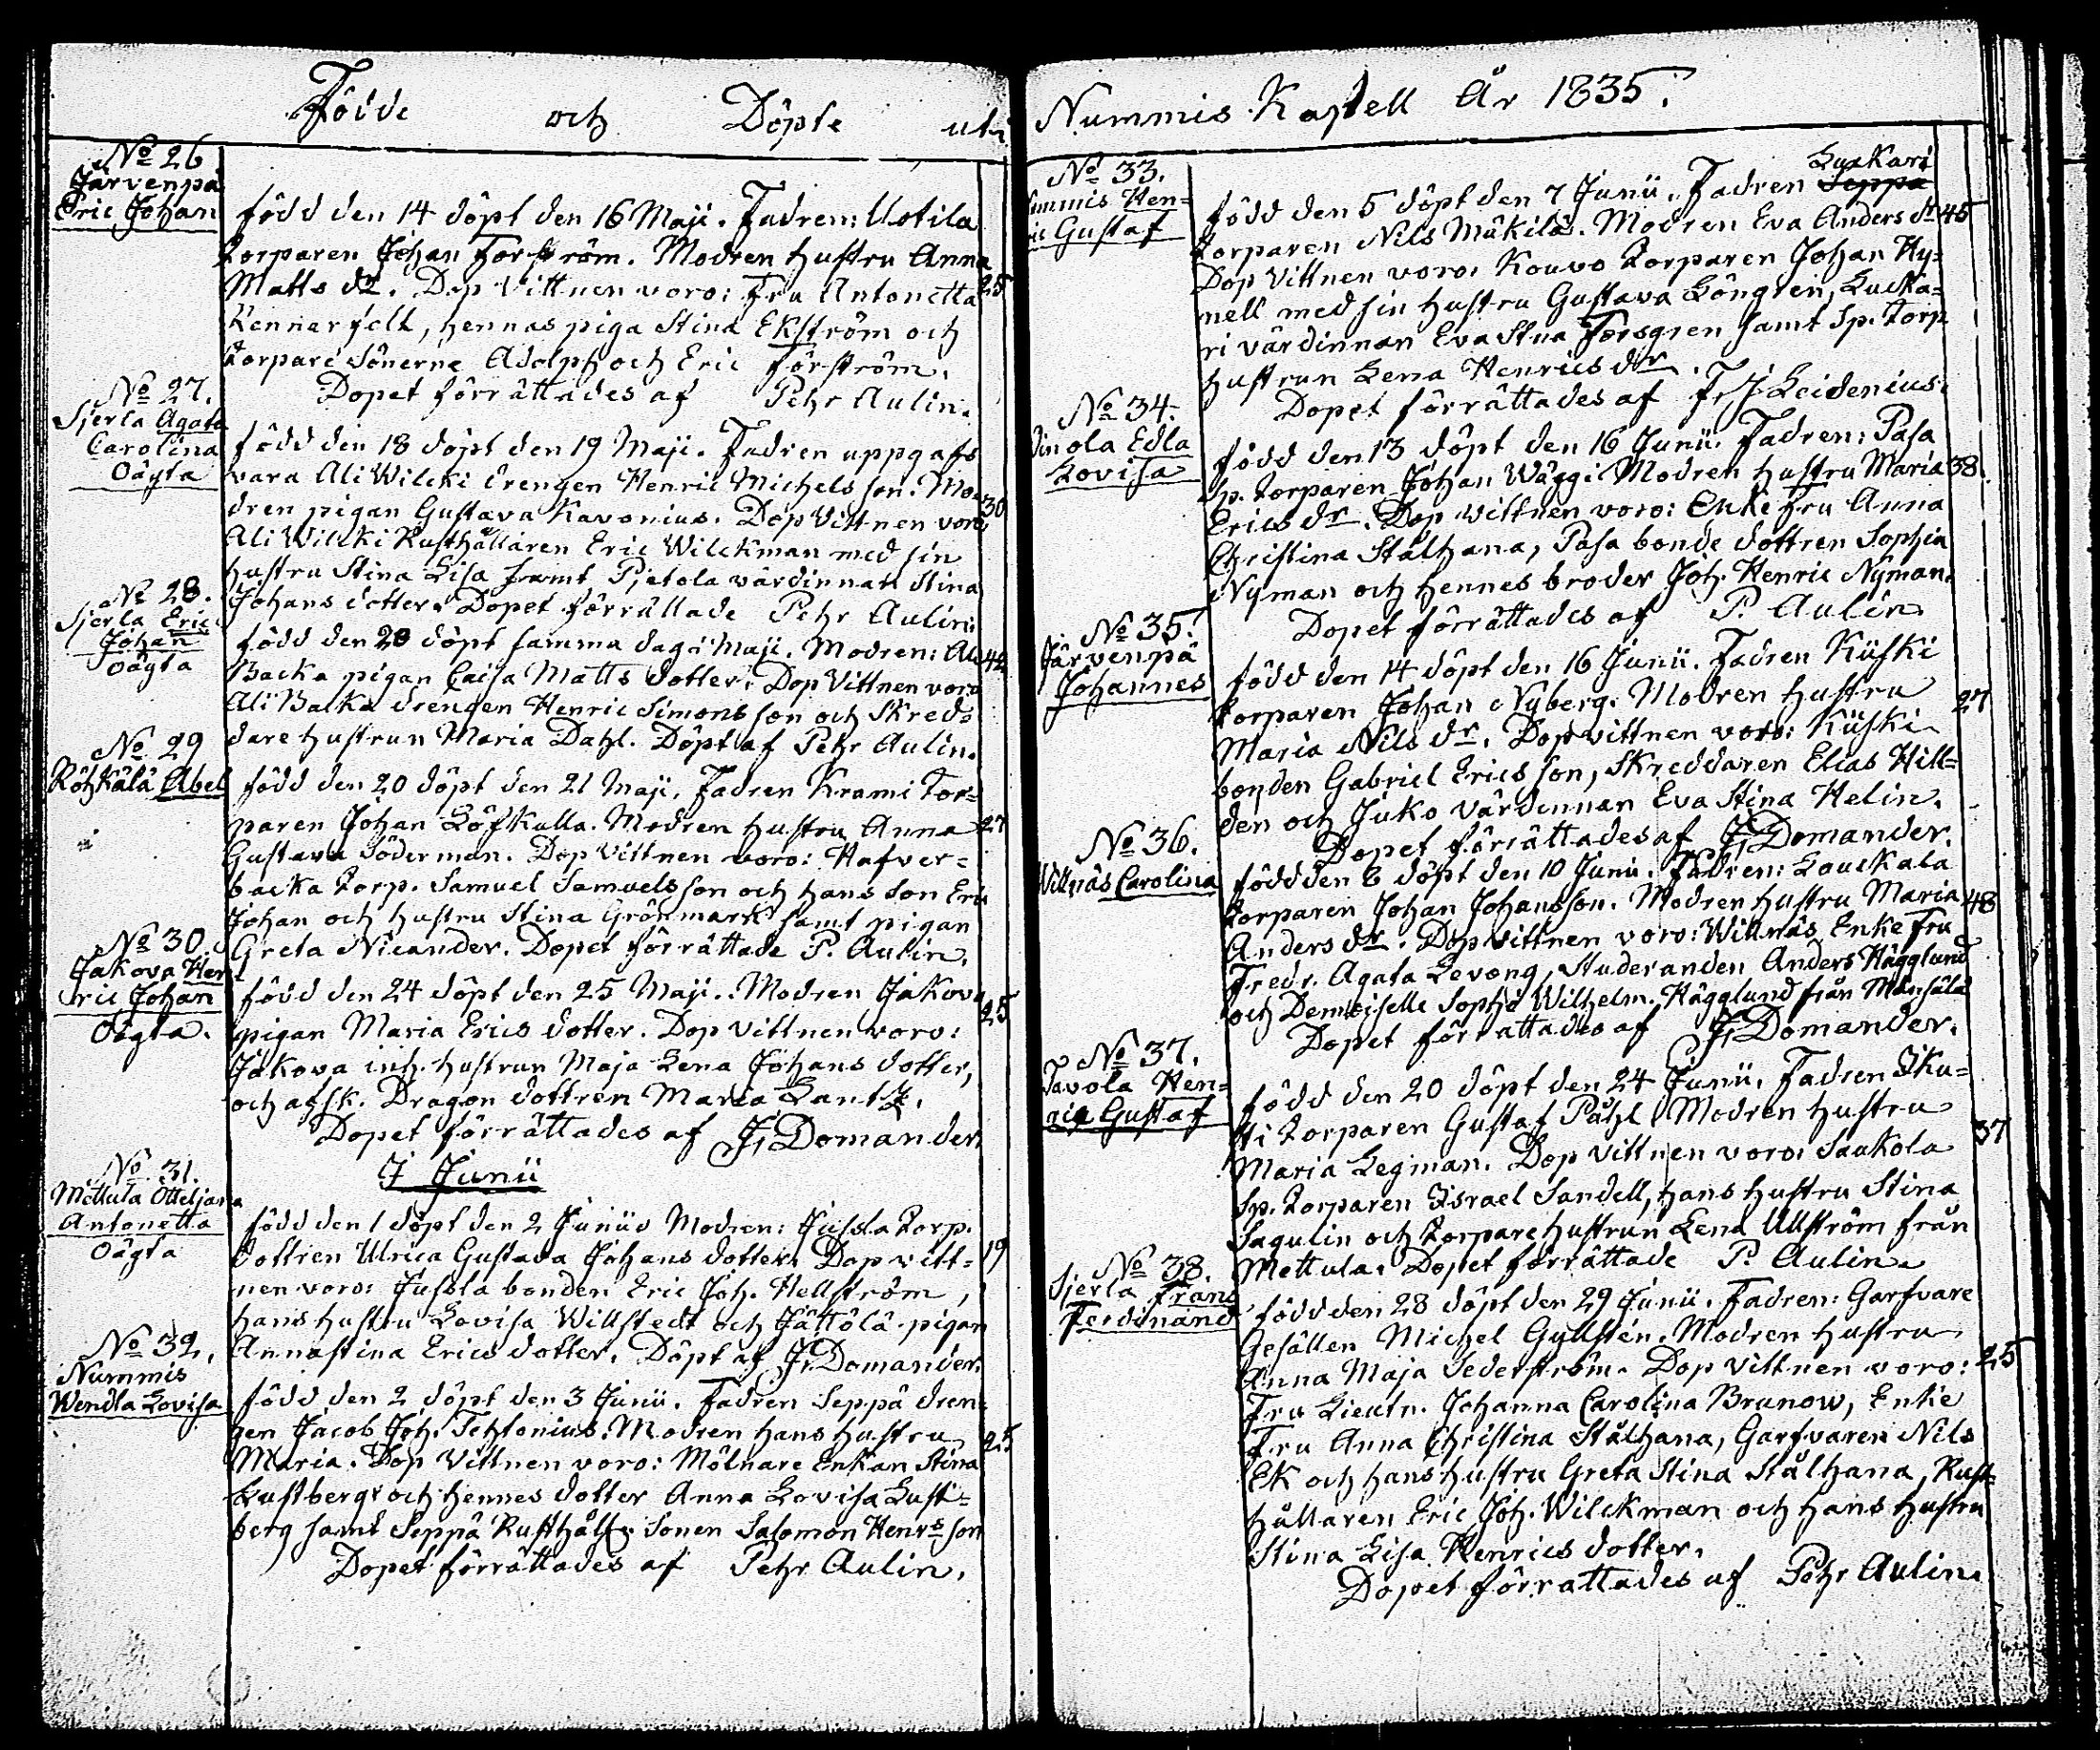 Födde och Döpte uti
No 26
Järvenpä
Eric Johan
född den 14 döpt den 16 Maji. Fadren: Uotila
torparen Johan Forström. Modren hustru Anna
Matts dr. Dop Vittnen voro: Fru Antonetta 25
Kennerfelt, hennas piga Stina Ekström och
torpare Sönerne Adolph och Eric Förström.
Dopet förrättades af Pehr Aulin.
No 27.
Sjerla Agata
Carolina
Oägta
född den 18 döpt den 19 Maji. Fadren uppgafs
vara Ali Wilcki drengen Henric Michels son. Mo-
dren pigan Gustava Kavonius. Dop Vittnen voro 30
Ali Wilcki Rusthållaren Eric Wilckman med sin
hustru Stina Lisa samt Pjetola värdinnan Stina
Johans dotter. Dopet förrättade Pehr Aulin.
No 28.
Sjerla Eric
Johan
oägta
född den 20 döpt samma dag i Maji. Modren: Ali 42
Backa pigan Caisa Matts dotter. Dop Vittnen voro
Ali Backa drengen Henric Simons son och Skred-
dare hustrun Maria Dahl. Döpt af Pehr Aulin.
No 29
Röhkälä Abel
född den 20 döpt den 21 Maji. Fadren Krami Tor-
paren Johan Löfkulla. Modren hustru Anna 27
Gustava Söderman. Dop Vittnen voro: Hafver-
backa torp. Samuel Samuels son och hans son Eric
Johan och hustru Stina Grönmark samt pigan
Greta Nicander. Dopet förrättade P. Aulin.
No 30.
Jakova Hen-
ric Johan
Oägta.
född den 24 döpt den 25 Maji. Modren Jakova
pigan Maria Erics dotter. Dop vittnen voro: 25
Jakova inh. hustrun Maja Lena Johans dotter,
och afsk. Dragon dottren Maria Lantz.
Dopet förrättades af J. Domander.
I Junii
No 31.
Mettula Otteljana
Antonetta
Oägta
född den 1 döpt den 2 Junii Modren: Jussla Torp.
dottren Ulrica Gustava Johans dotter. Dop vitt- 19
nen voro: Jussla bonden Eric Joh. Hellström,
hans hustru Lovisa Willstedt och Jättölä pigan
Annastina Erics dotter. Döpt af J. Domander.
No 32.
Nummis
Wendla Lovisa
född den 2 döpt den 3 Junii. Fadren Seppä dren-
gen Jacob Joh. Tehlonius. Modren hans hustru 25
Maria. Dop Vittnen voro: Mölnare Enkan Stina
Lustberg och hennes dotter Anna Lovisa Lust-
berg samt Seppä Rusthåll. Sonen Salomon Henrs son
Dopet förrättades af Pehr Aulin.
Nummis Kapell År 1835.
No 33.
Nummis Hen-
ric Gustaf
Luckari
född den 5 döpt den 7 Junii. Fadren Seppä
torparen Nils Mäkilä. Modren Eva Anders dr 45
Dop Vittnen voro: Kouvo torparen Johan Hy-
nell med sin hustru Gustava Löngren, Lucka-
ri värdinnan Eva Stina Forsgren samt Sp. torp.
hustrun Lena Henrics dr.
Dopet förrättades af F. J. Leidenius.
No 34.
Edla
Lovisa
född den 13 döpt den 16 Junii. Fadren: Pasa
Sp. torparen Johan Wägg. Modren hustru Maria 38.
Erics dr. Dop vittnen voro: Enke Fru Anna
Christina Stålhana, Pasa bonde dottren Sophia
Nyman och hennes broder Joh. Henric Nyman.
Dopet förrättades af P. Aulin
No 35.
Järvenpä
Johannes
född den 14 döpt den 16 Junii. Fadren Kuiski
torparen Johan Nyberg. Modren hustru 27
Maria Nils dr. Dop vittnen voro: Kuiski
bonden Gabriel Erics son, Skreddaren Elias Hill-
den och Juko Värdinnan Eva Stina Helin.
Dopet förrättades af J. Domander.
No 36.
Willnäs Carolina
född den 6 döpt den 10 Junii. Fadren: Louckala
torparen Johan Johansson. Modren hustru Maria 48
Anders dr. Dop vittnen voro: Willnäs Enke Fru
Fredr. Agata Levong, Studeranden Anders Hägglund
och Demoiselle Sophi Wilhelm. Hägglund från Mänsälä
Dopet förrättades af J. Domander.
No 37.
Tavola Hen-
ric Gustaf
född den 20 döpt den 24 Junii. Fadren Iku-
ti torparen Gustaf Påhl. Modren hustru 37
Maria Legman. Dop vittnen voro: Saukola
Sp. torparen Israel Sandell, hans hustru Stina
Sagulin och torpare hustrun Lena Ullström från
Mettula. Dopet förrättade P. Aulin.
No 38.
Sjerla Frans
Ferdinand
född den 28 döpt den 29 Junii. Fadren: Garfvare
Gesällen Michel Gyllstén. Modren hustru
Anna Maja Sederström. Dop Vittnen voro: 25
Fru Lieutn. Johanna Carolina Brunow, Enke
Fru Anna Christina Stålhana, Garfvaren Nils
Ek och hans hustru Greta Stina Stålhana, Rust-
hållaren Eric Joh. Wilckman och hans hustru
Stina Lisa Henrics dotter.
Dopet förrättades af Pehr Aulin.